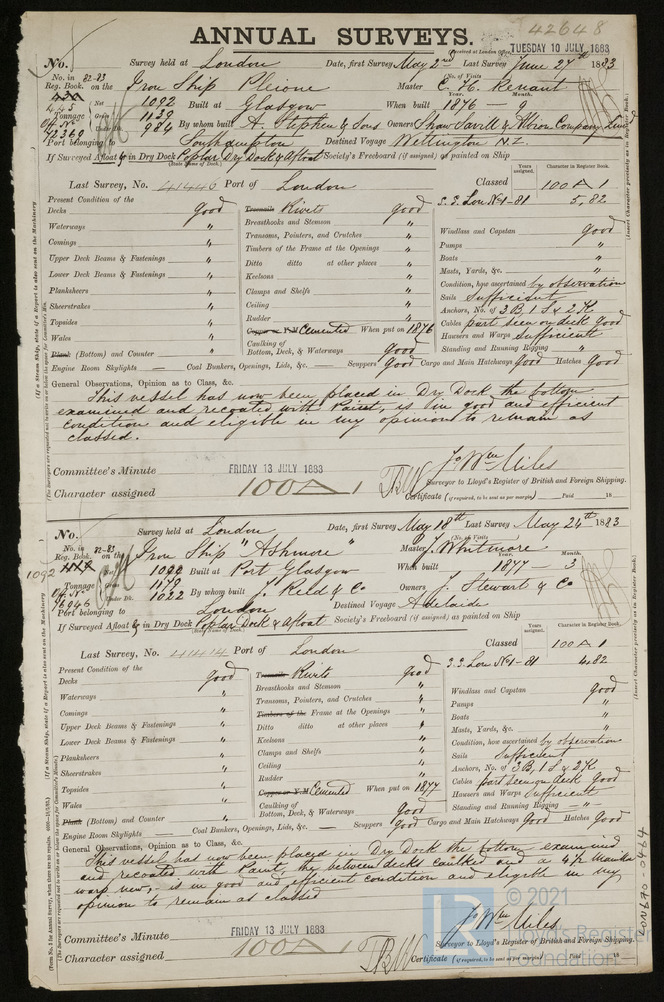 42648
ANNUAL SURVEYS.
(Received at London Office TUESDAY 10 JULY 1883
No. Survey held at London Date, first Survey May 2nd Last Survey June 27th 1883
No. in 82-83 Reg. Book. on the Iron Ship Pleione Master E. H. Renaut (No. of Visits
445 Net 1092 Built at Glasgow When built Year. 1876 Month. 9
Tonnage Gross 1139 By whom built A. Stephen & Sons Owners Shaw Savill & Albion Company Limd
Off. No. 72369 Under Dk. 984
Port belonging to Southampton Destined Voyage Wellington N.Z.
If Surveyed Afloat & in Dry Dock Poplar Dry Dock & Afloat Society's Freeboard (if assigned) as painted on Ship
(State Name of Dock.)
Last Survey, No. 41446 Port of London Classed Years assigned. Character in Register Book. 100A1
S.S. Lon No1-81 5,82
Present Condition of the
Decks Good
Waterways "
Comings "
Upper Deck Beams & Fastenings "
Lower Deck Beams & Fastenings "
Planksheers "
Sheerstrakes "
Topsides "
Wales "
Plank (Bottom) and Counter "
Treenails Rivets good
Breasthooks and Stemson "
Transoms, Pointers, and Crutches "
Timbers of the Frame at the Openings "
Ditto ditto at other places "
Keelsons "
Clamps and Shelfs "
Ceiling "
Rudder "
Copper or Y.M Cemented When put on 1876
Caulking of Bottom, Deck, & Waterways Good
Windlass and Capstan good
Pumps "
Boats "
Masts, Yards, &c. "
Condition, how ascertained by observation
Sails Sufficient
Anchors, No. of 3 B, 1 S & 2 K
Cables part seen on deck Good
Hawsers and Warps Sufficient
Standing and Running Rigging "
Engine Room Skylights — Coal Bunkers, Openings, Lids, &c. — Scuppers Good Cargo and Main Hatchways Good Hatches Good
General Observations, Opinion as to Class, &c.
This vessel has now been placed in Dry Dock the bottom
examined and recoated with Paint, is in good and efficient
condition and eligible in my opinion to remain as
classed.
Jo Wm Miles
Surveyor to Lloyd's Register of British and Foreign Shipping.
Committee's Minute FRIDAY 13 JULY 1883
Character assigned 100A1
Certificate (if required, to be sent as per margin) Paid 18
No. Survey held at London Date, first Survey May 18th Last Survey May 24th 1883
No. in 82-83 Reg. Book. on the Iron Ship "Ashmore" Master J. Whitmore (No. of Visits
1092 Net 1099 Built at Port Glasgow When built Year. 1877 Month. 3
Tonnage Gross 1179 By whom built J. Reid & Co Owners J. Stewart & Co
Off. No. 76046 Under Dk. 1022
Port belonging to London Destined Voyage Adelaide
If Surveyed Afloat & in Dry Dock Poplar Dock & Afloat Society's Freeboard (if assigned) as painted on Ship
(State Name of Dock.)
Last Survey, No. 41414 Port of London Classed Years assigned. Character in Register Book. 100A1
S.S. Lon No1-81 4,82
Present Condition of the
Decks Good
Waterways "
Comings "
Upper Deck Beams & Fastenings "
Lower Deck Beams & Fastenings "
Planksheers "
Sheerstrakes "
Topsides "
Wales "
Plank (Bottom) and Counter "
Treenails Rivets Good
Breasthooks and Stemson "
Transoms, Pointers, and Crutches "
Timbers of the Frame at the Openings "
Ditto ditto at other places "
Keelsons "
Clamps and Shelfs "
Ceiling "
Rudder "
Copper or Y.M Cemented When put on 1877
Caulking of Bottom, Deck, & Waterways Good
Windlass and Capstan Good
Pumps "
Boats "
Masts, Yards, &c. "
Condition, how ascertained by observation
Sails Sufficient
Anchors, No. of 3 B, 1 S & 2 K
Cables part seen on deck Good
Hawsers and Warps Sufficient
Standing and Running Rigging "
Engine Room Skylights — Coal Bunkers, Openings, Lids, &c. — Scuppers Good Cargo and Main Hatchways Good Hatches Good
General Observations, Opinion as to Class, &c.
This vessel has now been placed in Dry Dock the bottom examined
and recoated with Paint, the between decks caulked and a 4 1/2 Manilla
warp new, - is in good and efficient condition and eligible in my
opinion to remain as classed
Jo Wm Miles
Surveyor to Lloyd's Register of British and Foreign Shipping.
Committee's Minute FRIDAY 13 JULY 1883
Character assigned 100A1
Certificate (if required, to be sent as per margin) Paid 18
LON670-0464
© 2021
Lloyd's Register
Foundation